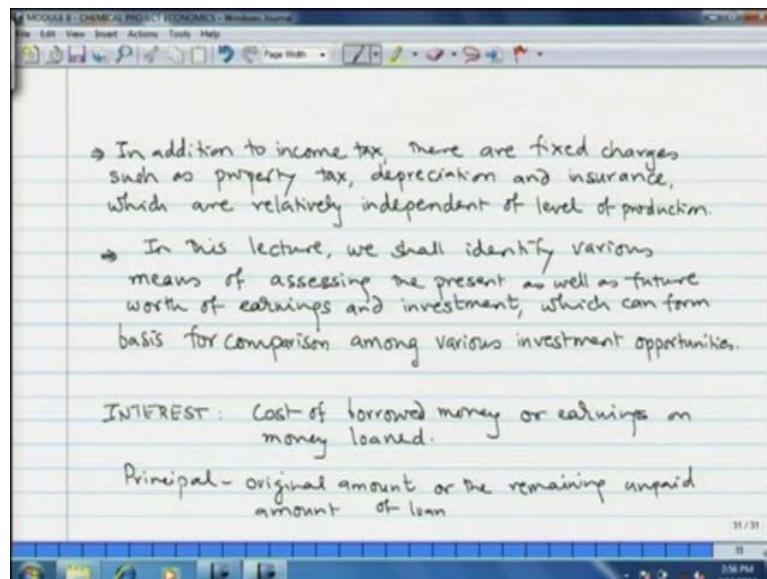 MODULE 8 - CHEMICAL PROJECT ECONOMICS - Windows Journal
File Edit View Insert Actions Tools Help
Page Width
→ In addition to income tax, there are fixed charges
such as property tax, depreciation and insurance,
which are relatively independent of level of production.
→ In this lecture, we shall identify various
means of assessing the present as well as future
worth of earnings and investment, which can form
basis for comparison among various investment opportunities.
INTEREST : Cost of borrowed money or earnings on
money loaned.
Principal - original amount or the remaining unpaid
amount of loan
31 / 31
2:56 PM